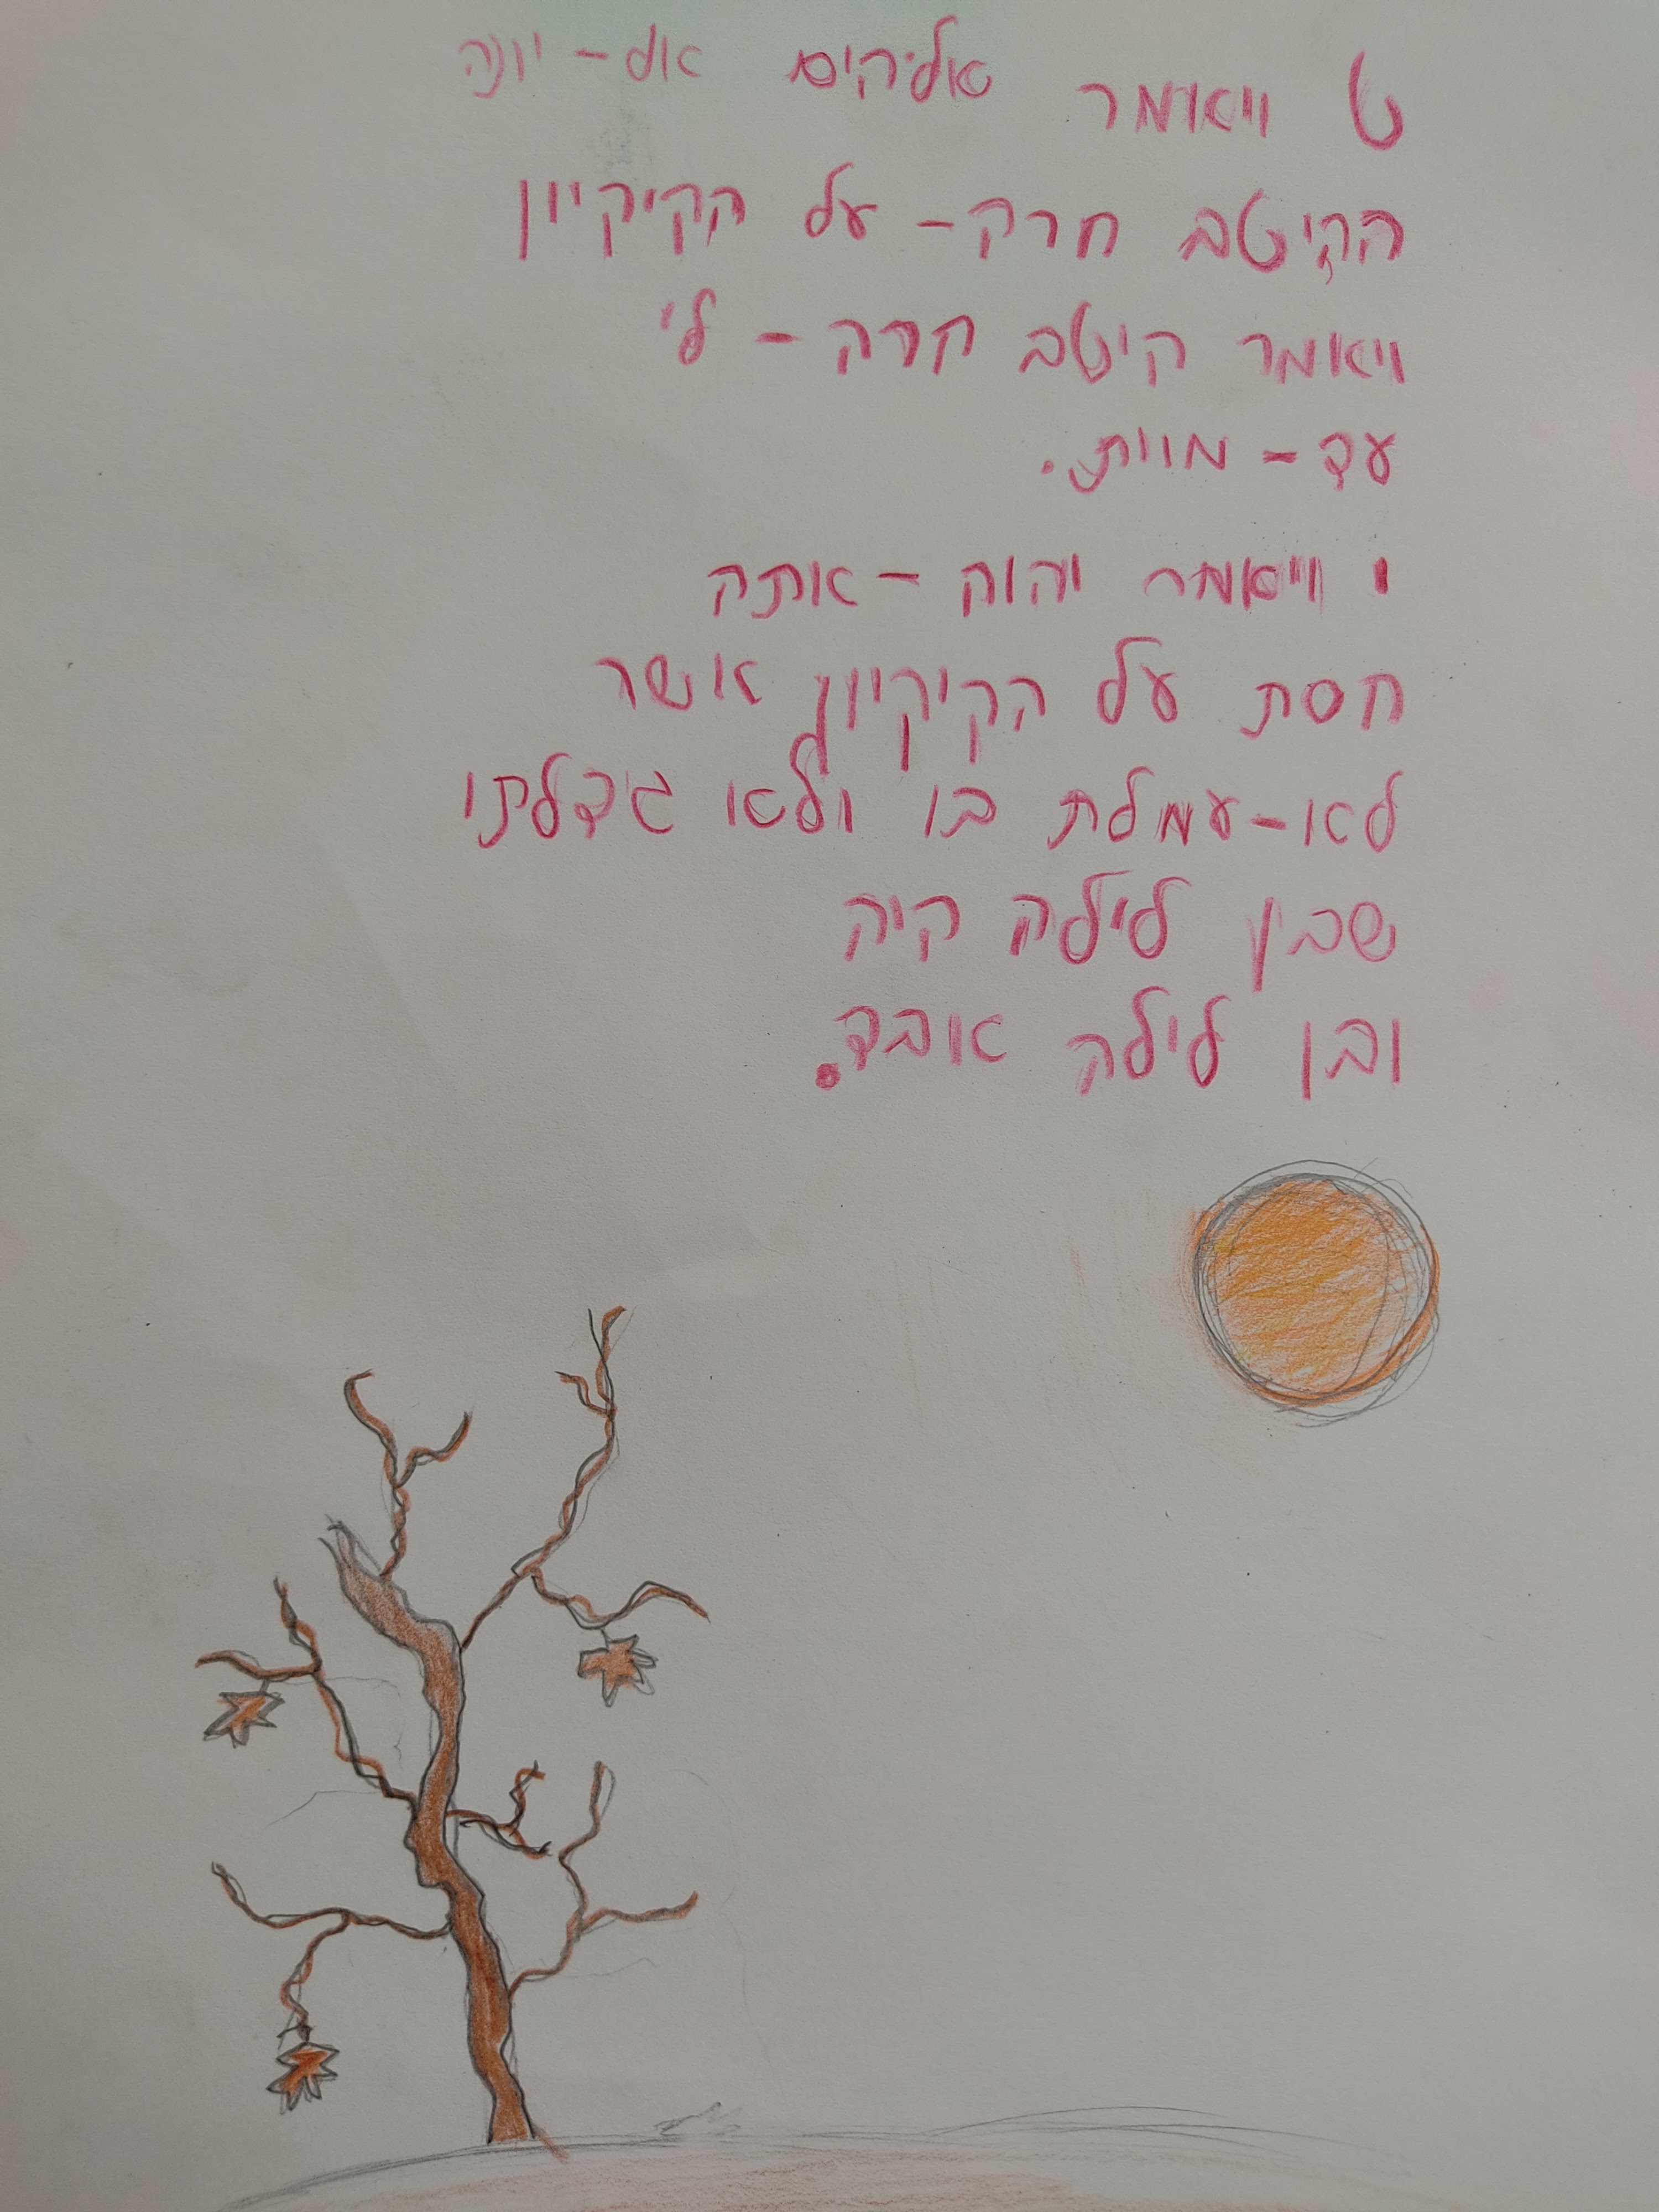 ט ויאמר אלהים אל-יונה
ההיטב חרה-על הקיקיון
ויאמר היטב חרה-לי
עד-מוות.
י וויאמר יהוה-אתה
חסת על הקיקיון אשר
לא-עמלת בו ולא גדלתו
שבן לילה היה
ובן לילה אבד.